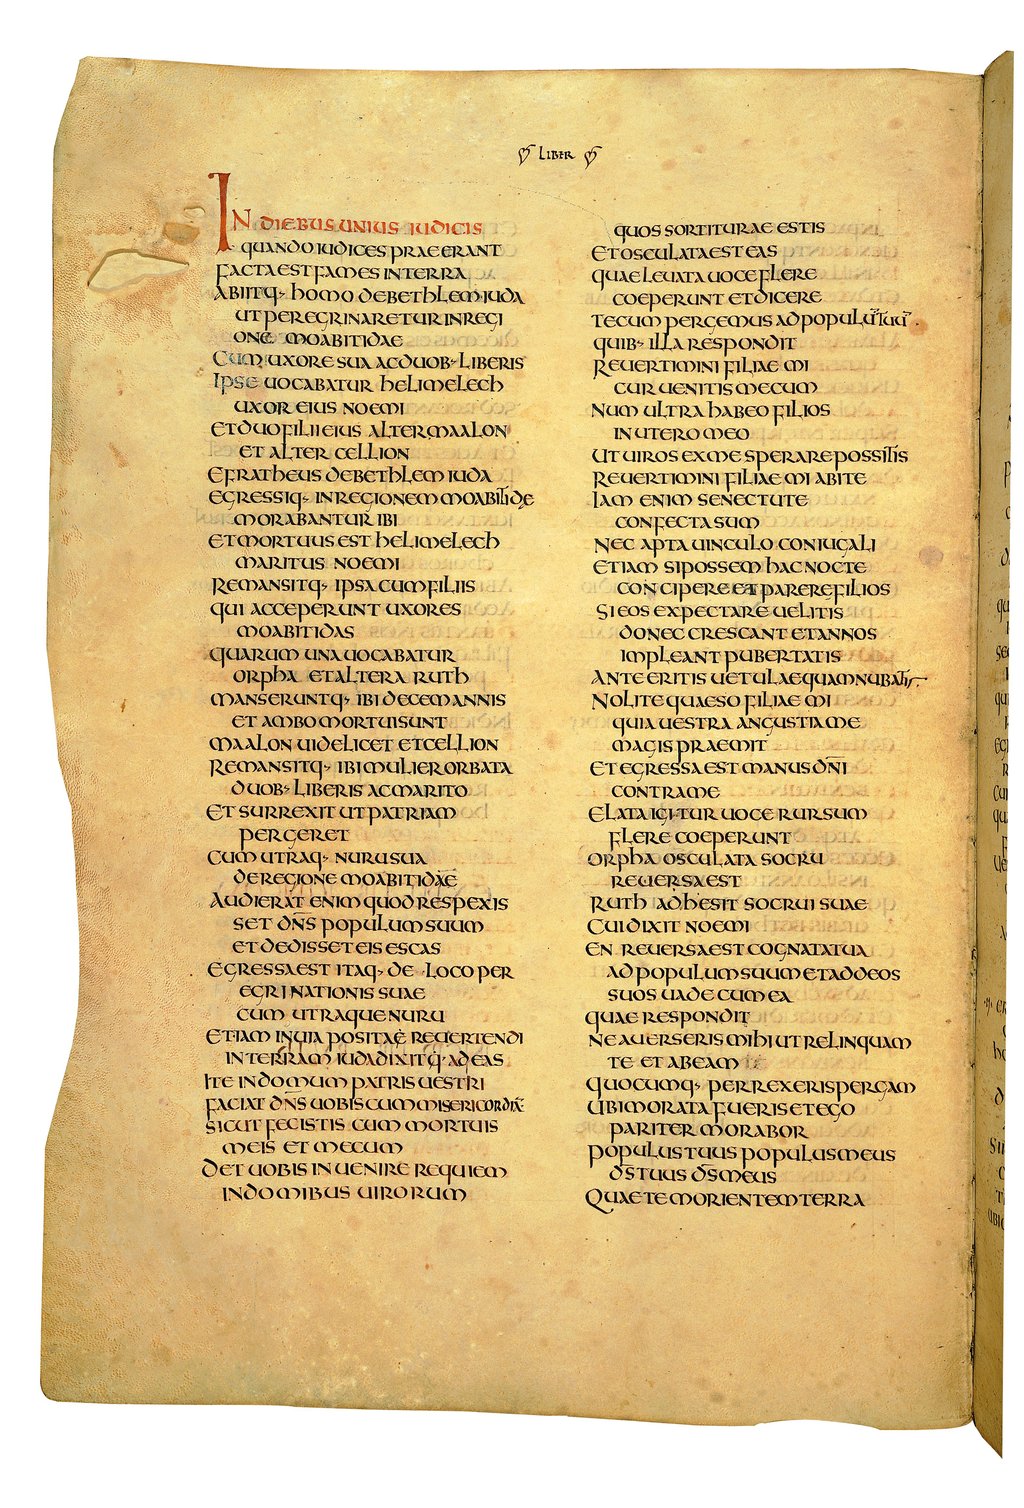 LIBER
IN DIEBUS UNIUS IUDICIS
QUANDO IUDICES PRAEERANT
FACTA EST FAMES IN TERRA
ABIITQ· HOMO DE BETHLEEM IUDA
UT PEREGRINARETUR IN REGI
ONE MOABITIDAE
CUM UXORE SUA AC DUOB· LIBERIS
IPSE UOCABATUR HELIMELECH
UXOR EIUS NOEMI
ET DUO FILII EIUS ALTER MAALON
ET ALTER CELLION
EFRATHEUS DE BETHLEEM IUDA
EGRESSIQ· IN REGIONEM MOABITIDE
MORABANTUR IBI
ET MORTUUS EST HELIMELECH
MARITUS NOEMI
REMANSITQ· IPSA CUM FILIIS
QUI ACCEPERUNT UXORES
MOABITIDAS
QUARUM UNA UOCABATUR
ORPHA ET ALTERA RUTH
MANSERUNTQ· IBI DECEM ANNIS
ET AMBO MORTUI SUNT
MAALON UIDELICET ET CELLION
REMANSITQ· IBI MULIER ORBATA
DUOB· LIBERIS AC MARITO
ET SURREXIT UT PATRIAM
PERGERET
CUM UTRAQ· NURU SUA
DE REGIONE MOABITIDAE
AUDIERAT ENIM QUOD RESPEXIS
SET DN̄S POPULUM SUUM
ET DEDISSET EIS ESCAS
EGRESSA EST ITAQ· DE LOCO PER
EGRINATIONIS SUAE
CUM UTRAQUE NURU
ET IAM IN UIA POSITAE REUERTENDI
IN TERRAM IUDA DIXITQ· AD EAS
ITE IN DOMUM PATRIS UESTRI
FACIAT DN̄S UOBISCUM MISERICORDIĀ
SICUT FECISTIS CUM MORTUIS
MEIS ET MECUM
DET UOBIS INUENIRE REQUIEM
IN DOMIBUS UIRORUM
QUOS SORTITURAE ESTIS
ET OSCULATA EST EAS
QUAE LEUATA UOCE FLERE
COEPERUNT ET DICERE
TECUM PERGEMUS AD POPULŪ TUŪ
QUIB· ILLA RESPONDIT
REUERTIMINI FILIAE MI
CUR UENITIS MECUM
NUM ULTRA HABEO FILIOS
IN UTERO MEO
UT UIROS EX ME SPERARE POSSITIS
REUERTIMINI FILIAE MI ABITE
IAM ENIM SENECTUTE
CONFECTA SUM
NEC APTA UINCULO CONIUGALI
ETIAM SI POSSEM HAC NOCTE
CONCIPERE ET PARERE FILIOS
SI EOS EXPECTARE UELITIS
DONEC CRESCANT ET ANNOS
IMPLEANT PUBERTATIS
ANTE ERITIS UETULAE QUAM NUBATIS
NOLITE QUAESO FILIAE MI
QUIA UESTRA ANGUSTIA ME
MAGIS PRAEMIT
ET EGRESSA EST MANUS DN̄I
CONTRA ME
ELATA IGITUR UOCE RURSUM
FLERE COEPERUNT
ORPHA OSCULATA SOCRU
REUERSA EST
RUTH ADHESIT SOCRUI SUAE
CUI DIXIT NOEMI
EN REUERSA EST COGNATA TUA
AD POPULUM SUUM ET AD DEOS
SUOS UADE CUM EA
QUAE RESPONDIT
NE AUERSERIS MIHI UT RELINQUAM
TE ET ABEAM
QUOCUMQ· PERREXERIS PERGAM
UBI MORATA FUERIS ET EGO
PARITER MORABOR
POPULUS TUUS POPULUS MEUS
DS̄ TUUS DS̄ MEUS
QUAE TE MORIENTEM TERRA